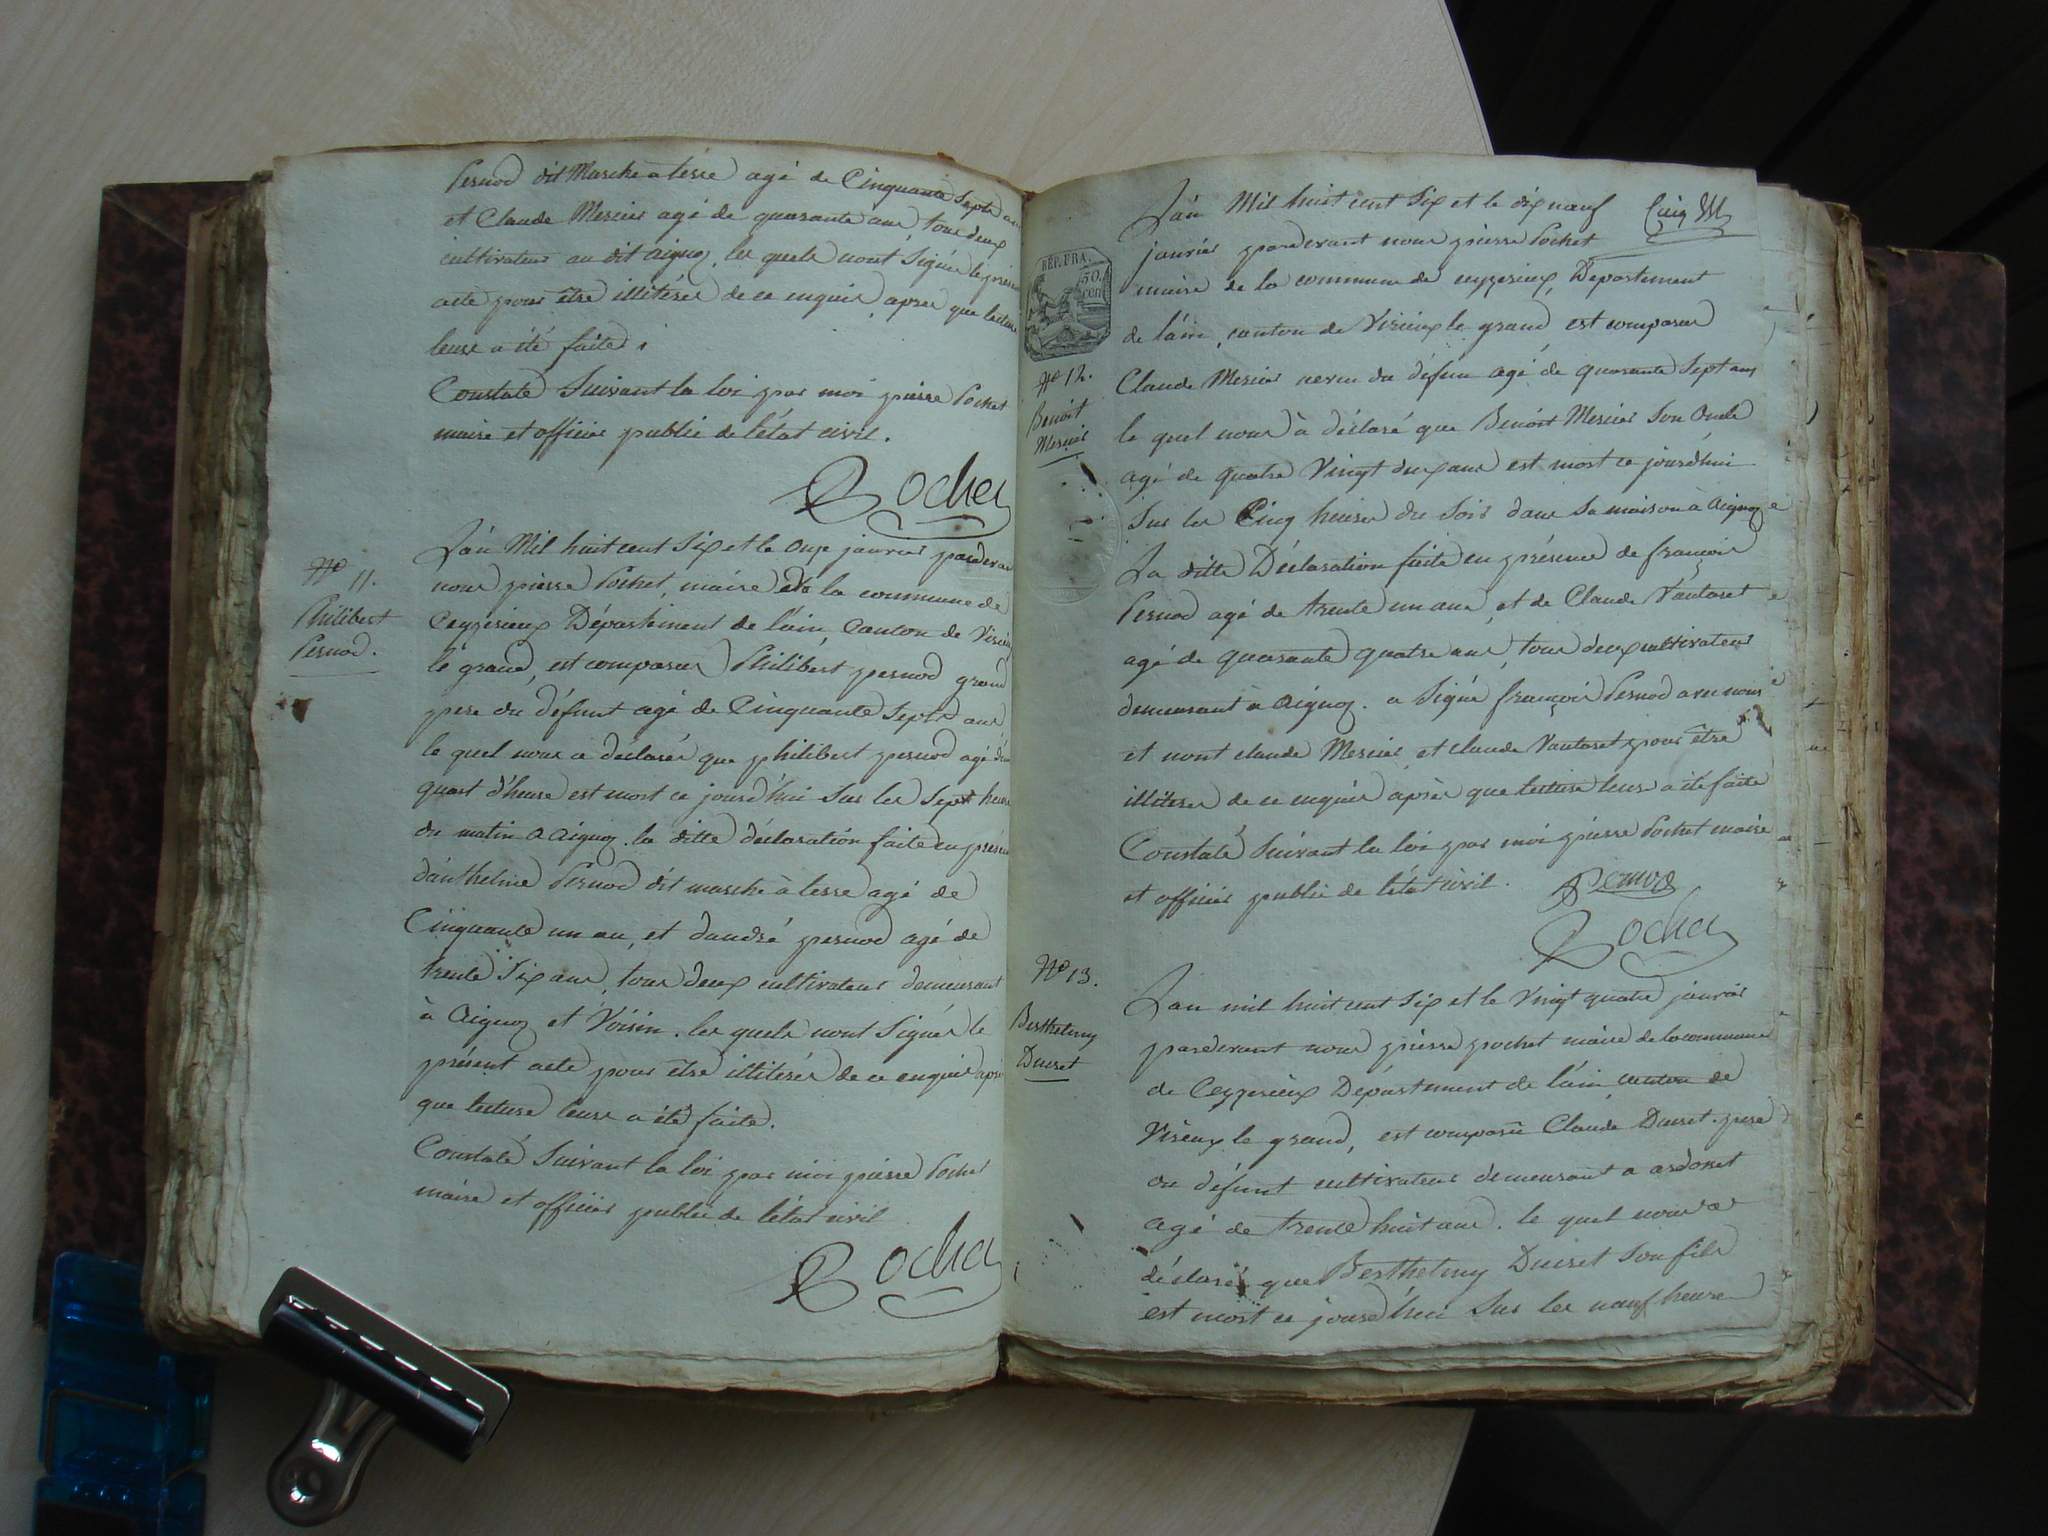 Pernod dit Marche a terre agé de Cinquante Septs ans
et Claude Mercier agé de quarante ans tous deux
cultivateurs au dit aignoz, les quels n'ont Signés le présent
acte pour être illitérés de ce enquis, après que lecture
leurs a été faite.
Constaté Suivant la loi par moi pierre Pochet
maire et officier public de l'état civil.
Pochet
L'an Mil huit cent Six et le onze janvier pardevant
nous pierre Pochet, maire de la commune de
Ceyzerieux Département de l'ain, Canton de Virieux
le grand, est comparus Philibert pernod grand
N° 11.
Philibert
Pernod.
pere du défunt agé de Cinquante Septs ans
le quel nous a declaré que philibert pernod agé d'un
quart d'heure est mort ce jourd'hui Sur les Sept heures
du matin a aignoz. la ditte déclaration faite en présence
d'anthelme Pernod dit marche à terre agé de
Cinquante un an, et d'andré pernod agé de
trente Six ans, tous deux cultivateurs demeurant
à Aignoz et Voisin. les quels n'ont Signés le
présent acte pour être illitérés de ce enquis après
que lecture leurs a été faite.
Constaté Suivant la loi par moi pierre Pochet
maire et officier public de l'état civil
Pochet
L'an Mil huit cent Six et le dix neuf
janvier pardevant nous pierre Pochet
REP. FRA.
50.
cen
maire de la commune de ceyzerieux, Département
de l'ain, canton de Virieux le grand, est comparus
N° 12.
Benoit
Mercier
Claude Mercier neveu du défun agé de quarante Sept ans
le quel nous à déclaré que Benoit Mercier Son Oncle
agé de quatre Vingt deux ans est mort ce jourd'hui
Sur les Cinq heures du Soir dans Sa maison à Aignoz
La ditte Déclaration faite en présence de françois
Pernod agé de trente un ans, et de Claude Vautaret
agé de quarante quatre ans, tous deux cultivateurs
demeurant a Aignoz. a Signé françois Pernod avec nous
et nont claude Mercier, et claude Vautaret pour être
illitérés de ce enquis après que lecture leurs a été faite
Constaté Suivant la loi par moi pierre Pochet maire
et officier public de l'état civil.
Pernod
Pochet
N° 13.
Berthelmy
Ducret
L'an mil huit cent Six et le Vingt quatre janvier
pardevant nous pierre pochet maire de la commune
de Ceyzerieux Département de l'ain, canton de
Virieux le grand, est comparu Claude Ducret pere
du défunt cultivateur demeurant a ardosset
agé de trente huit ans. le quel nous a
déclaré que Berthelmy Ducret Son fils
est mort ce jourd'hui Sur les neuf heures